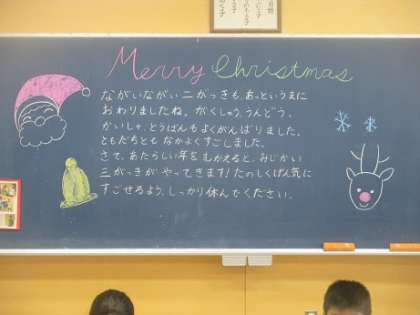 Merry Christmas
ながいながい二がっきも、あっというまに
おわりましたね。がくしゅう、うんどう、
かいしゃ、とうばんもよくがんばりました。
ともだちとも なかよくすごしました。
さて、あたらしい年をむかえると、みじかい
三がっきが やってきます！たのしくげん気に
すごせるよう、しっかり休んでください。